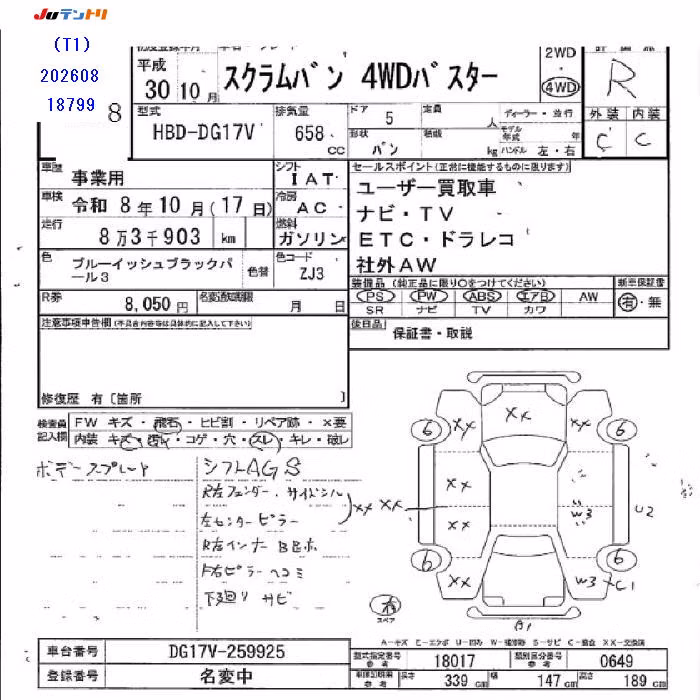 JUテントリ
(T1)
202608
18799
8
平成
30年10月
スクラムバン 4WDバスター
2WD
・
4WD
R
型式
HBD-DG17V
排気量
658 CC
ドア 5
定員 人
形状 バン
積載 kg
ディーラー・並行
モデル年式 年
ハンドル 左・右
外装 内装
C C
車歴 事業用
シフト IAT
車検 令和 8年10月(17日)
冷房 AC
走行 8万3千903 km
燃料 ガソリン
色 ブルーイッシュブラックパール3
色替
色コード ZJ3
R券 8,050円
名変通知期限 月 日
セールスポイント(正常に機能するものに限ります)
ユーザー買取車
ナビ・TV
ETC・ドラレコ
社外AW
装備品(純正品に限り○をつけてください)
新車保証書
PS PW ABS エアB AW
有・無
SR ナビ TV カワ
後日品 保証書・取説
注意事項申告欄(不具合内容等は具体的に記入して下さい)
修復歴 有〔箇所 〕
検査員記入欄
FW キズ・飛石・ヒビ割・リペア跡・×要
内装 キズ・汚レ・コゲ・穴・スレ・キレ・破レ
ボデースプレート
シフトAGS
R左フェンダー・サイドシル
左センターピラー
R左インナー
F右ピラーヘコミ
下廻リ サビ
XX XX
XX
XX XX
6 6
XX
XX
W3
U2
6 6
XX
W3
C1
B1
有
スペア
A-キズ E-エクボ U-凹み W-補修跡 S-サビ C-腐食 XX-交換済
車台番号 DG17V-259925
登録番号 名変中
型式指定番号 参考 18017
類別区分番号 参考 0649
車検証明細 参考 長さ 339 cm 幅 147 cm 高さ 189 cm